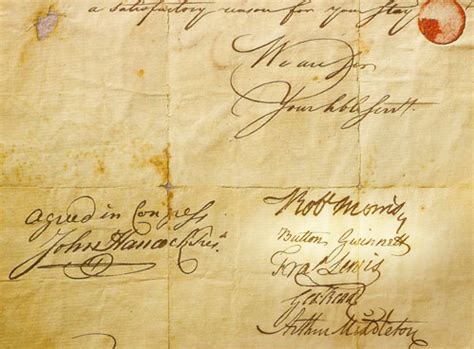 a satisfactory reason for your stay
We are Sir
Your hble Servt.
agreed in Congress
John Hancock Prest.
Robt Morris
Button Gwinnett
Fras. Lewis
Geo Read
Arthur Middleton